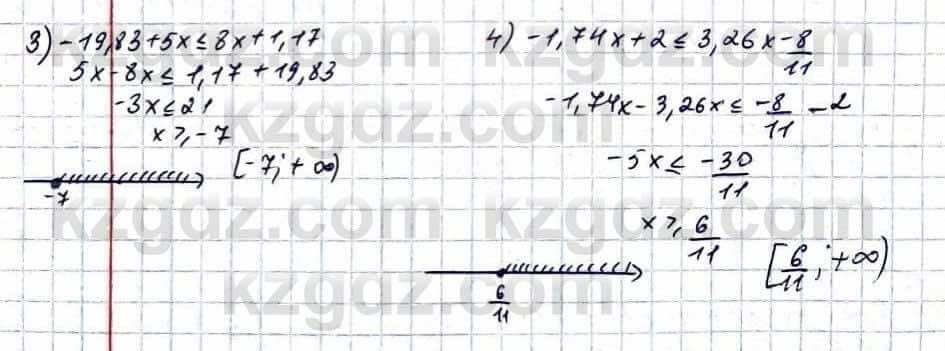 3) -19,83+5x≤8x+1,17
5x-8x≤1,17+19,83
-3x≤21
x≥-7
[-7;+∞)
-7
4) -1,74x+2≤3,26x-8/11
-1,74x-3,26x≤-8/11-2
-5x≤-30/11
x≥6/11
[6/11;+∞)
6/11
kzgdz.com kzgdz.com
kzgdz.com
kzgdz.com kzgdz.com
kzgdz.com